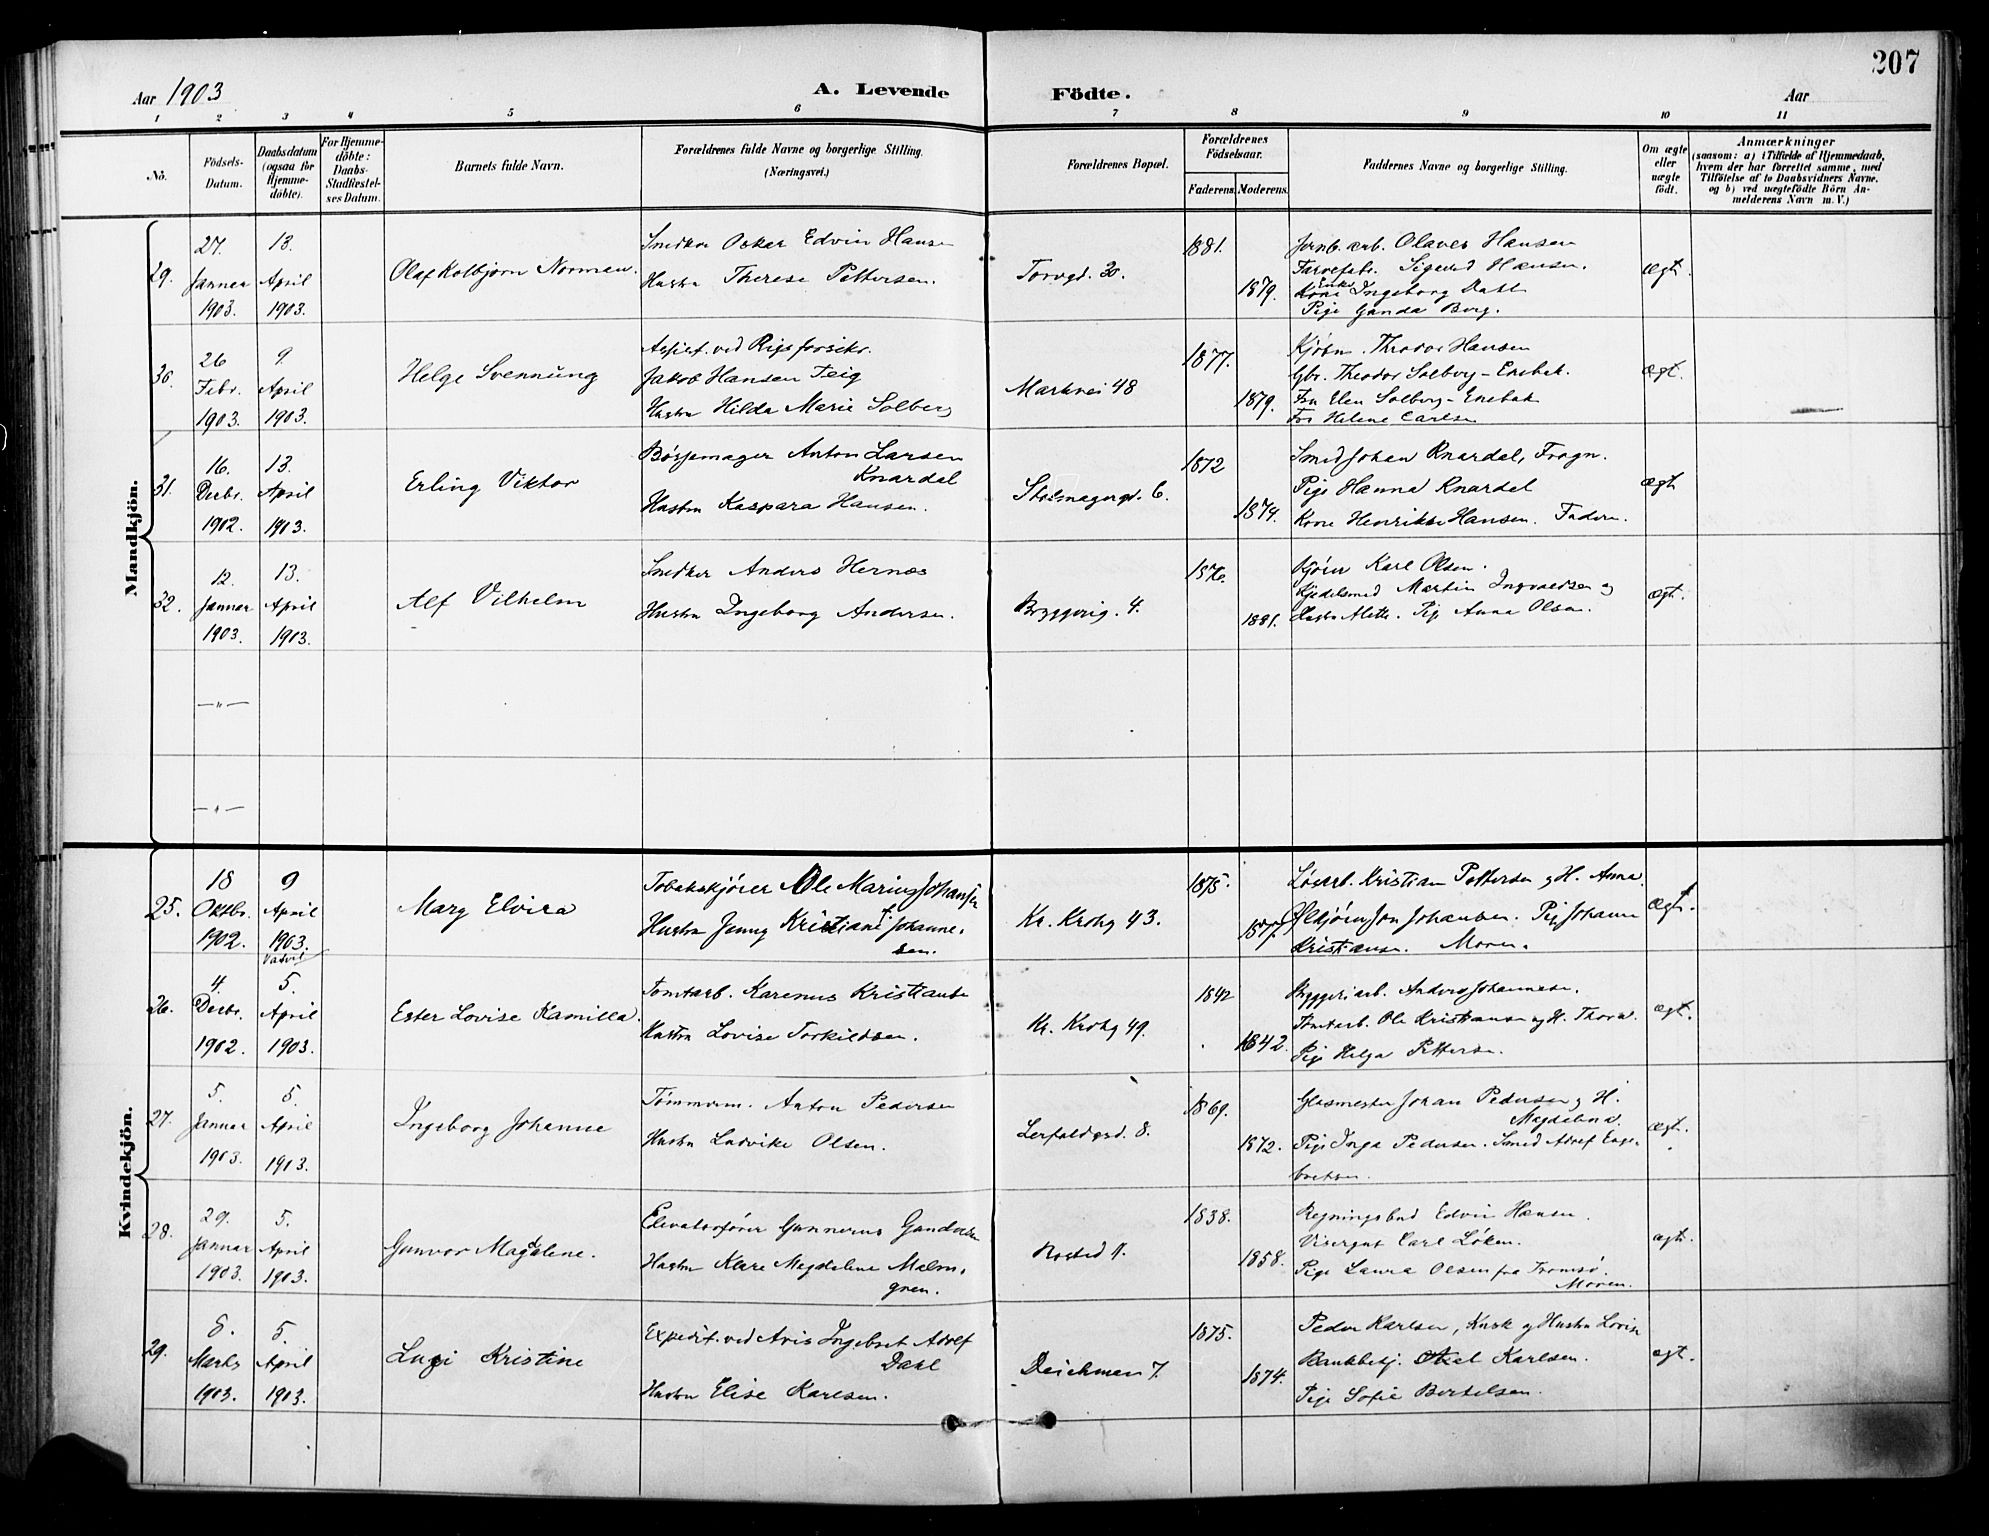 207
Aar 1903
A. Levende Födte.
Aar
1 2 3 4 5 6 7 8 9 10 11
No.
Födsels-Datum.
Daabsdatum (ogsaa for Hjemme-döbte).
For Hjemme-döbte: Daabs-Stadfæstel-ses Datum.
Barnets fulde Navn.
Forældrenes fulde Navne og borgerlige Stilling. (Næringsvei.)
Forældrenes Bopæl.
Forældrenes Födselsaar.
Faderens. Moderens.
Faddernes Navne og borgerlige Stilling.
Om ægte eller uægte født.
Anmærkninger
(saasom: a) i Tilfælde af Hjemmedaab,
hvem der har forrettet samme, med
Tilföielse af to Daabsvidners Navne,
og b) ved uægtefödte Börn An-
melderens Navn m. V.)
Mandkjön.
29.
27. Januar 1903.
13. April 1903.
Olaf Kolbjørn Norman.
Snedker Osker Edvin Hansen
Hustru Therese Pettersen.
Torvgd. 20.
1881.
1879.
Jernb. arb. Olaves Hansen
Farvefabr. Sigurd Hansen.
Enke Ingeborg Dahl
Pige Ganda Berg.
Ægte
30.
26 Febr. 1903.
9. April 1903.
Helge Svennung
Assist. ved Rigsforsikr.
Jakob Hansen Teig
Hustru Hilda Marie Solberg
Markvei 48
1877.
1879.
Kjøbm. Theodor Hansen
Gbr. Theodor Solberg - Enebak.
Fru Elen Solberg - Enebak
Frk Helene Carlsen
ægt.
31.
16. Decbr. 1902.
13. April 1903.
Erling Viktor
Børsemager Anton Larsen
Knardal
Hustru Kaspara Hansen.
Stolmagergd. 6.
1872
1874.
Smed Johan Knardal, Frogn.
Pige Hanna Knardal
Kone Henrikke Hansen. Faderen.
ægt
32.
12. Januar 1903.
13. April 1903.
Alf Vilhelm
Snedker Anders Hernæs
Hustru Ingeborg Andersen.
Bryggerig. 4.
1876.
1881.
Kjører Karl Olsen.
Kjedelsmed Martin Ingvaldsen og
Hustru Alette. Pige Anna Olsen.
ægt.
—"—
—"—
Kvindekjön.
25.
18 Oktbr. 1902.
9 April 1903.
Mary Elvira
Tobakskjører Ole Marius Johansen
Hustru Jenny Kristiane f. Johanne-
sen.
Kr. Krohg 43.
1875.
1877.
Løsarb. Kristian Pettersen og H. Anna.
Ølkjører Jon Johansen. Pige Johanne
Kristiansen. Moren.
ægt.
26.
4. Decbr. 1902.
5. April 1903.
Ester Lovise Kamilla.
Tomtarb. Karenus Kristiansen
Hustru Lovise Torkildsen.
Kr. Krohg 49.
1842
1842.
Bryggeriarb. Anders Johannesen.
Tomtarb. Ole Kristiansen og H. Thora.
Pige Helga Pettersen.
ægt.
27.
5. Januar 1903.
5. April 1903.
Ingeborg Johanne
Tømmerm. Anton Pedersen
Hustru Ludvike Olsen.
Lerfaldgsd. 8.
1869.
1872.
Glasmester Johan Pedersen og H.
Magdelena.
Pige Inga Pedersen. Smed Adolf Enge-
bretsen.
ægt.
28.
29. Januar 1903.
5. April 1903.
Gunvor Magdalene.
Elevatorfører Gunnerus Gundersen
Hustru Klara Magdeline Malm-
gren.
Rosted 11.
1838.
1858.
Regningsbud Edvin Hansen.
Visergut Carl Løken.
Pige Laura Olsen fra Tromsø.
Moren.
ægt.
29.
8. Marts 1903.
5. April 1903.
Lugi Kristine
Expedit. ved Avis Ingebret Adolf
Dahl
Hustru Elise Karlsen.
Deichman 7.
1875.
1874.
Peder Karlsen, Kusk og Hustru Lovise
Bankbetj. Axel Karlsen.
Pige Sofie Bertelsen.
ægt.